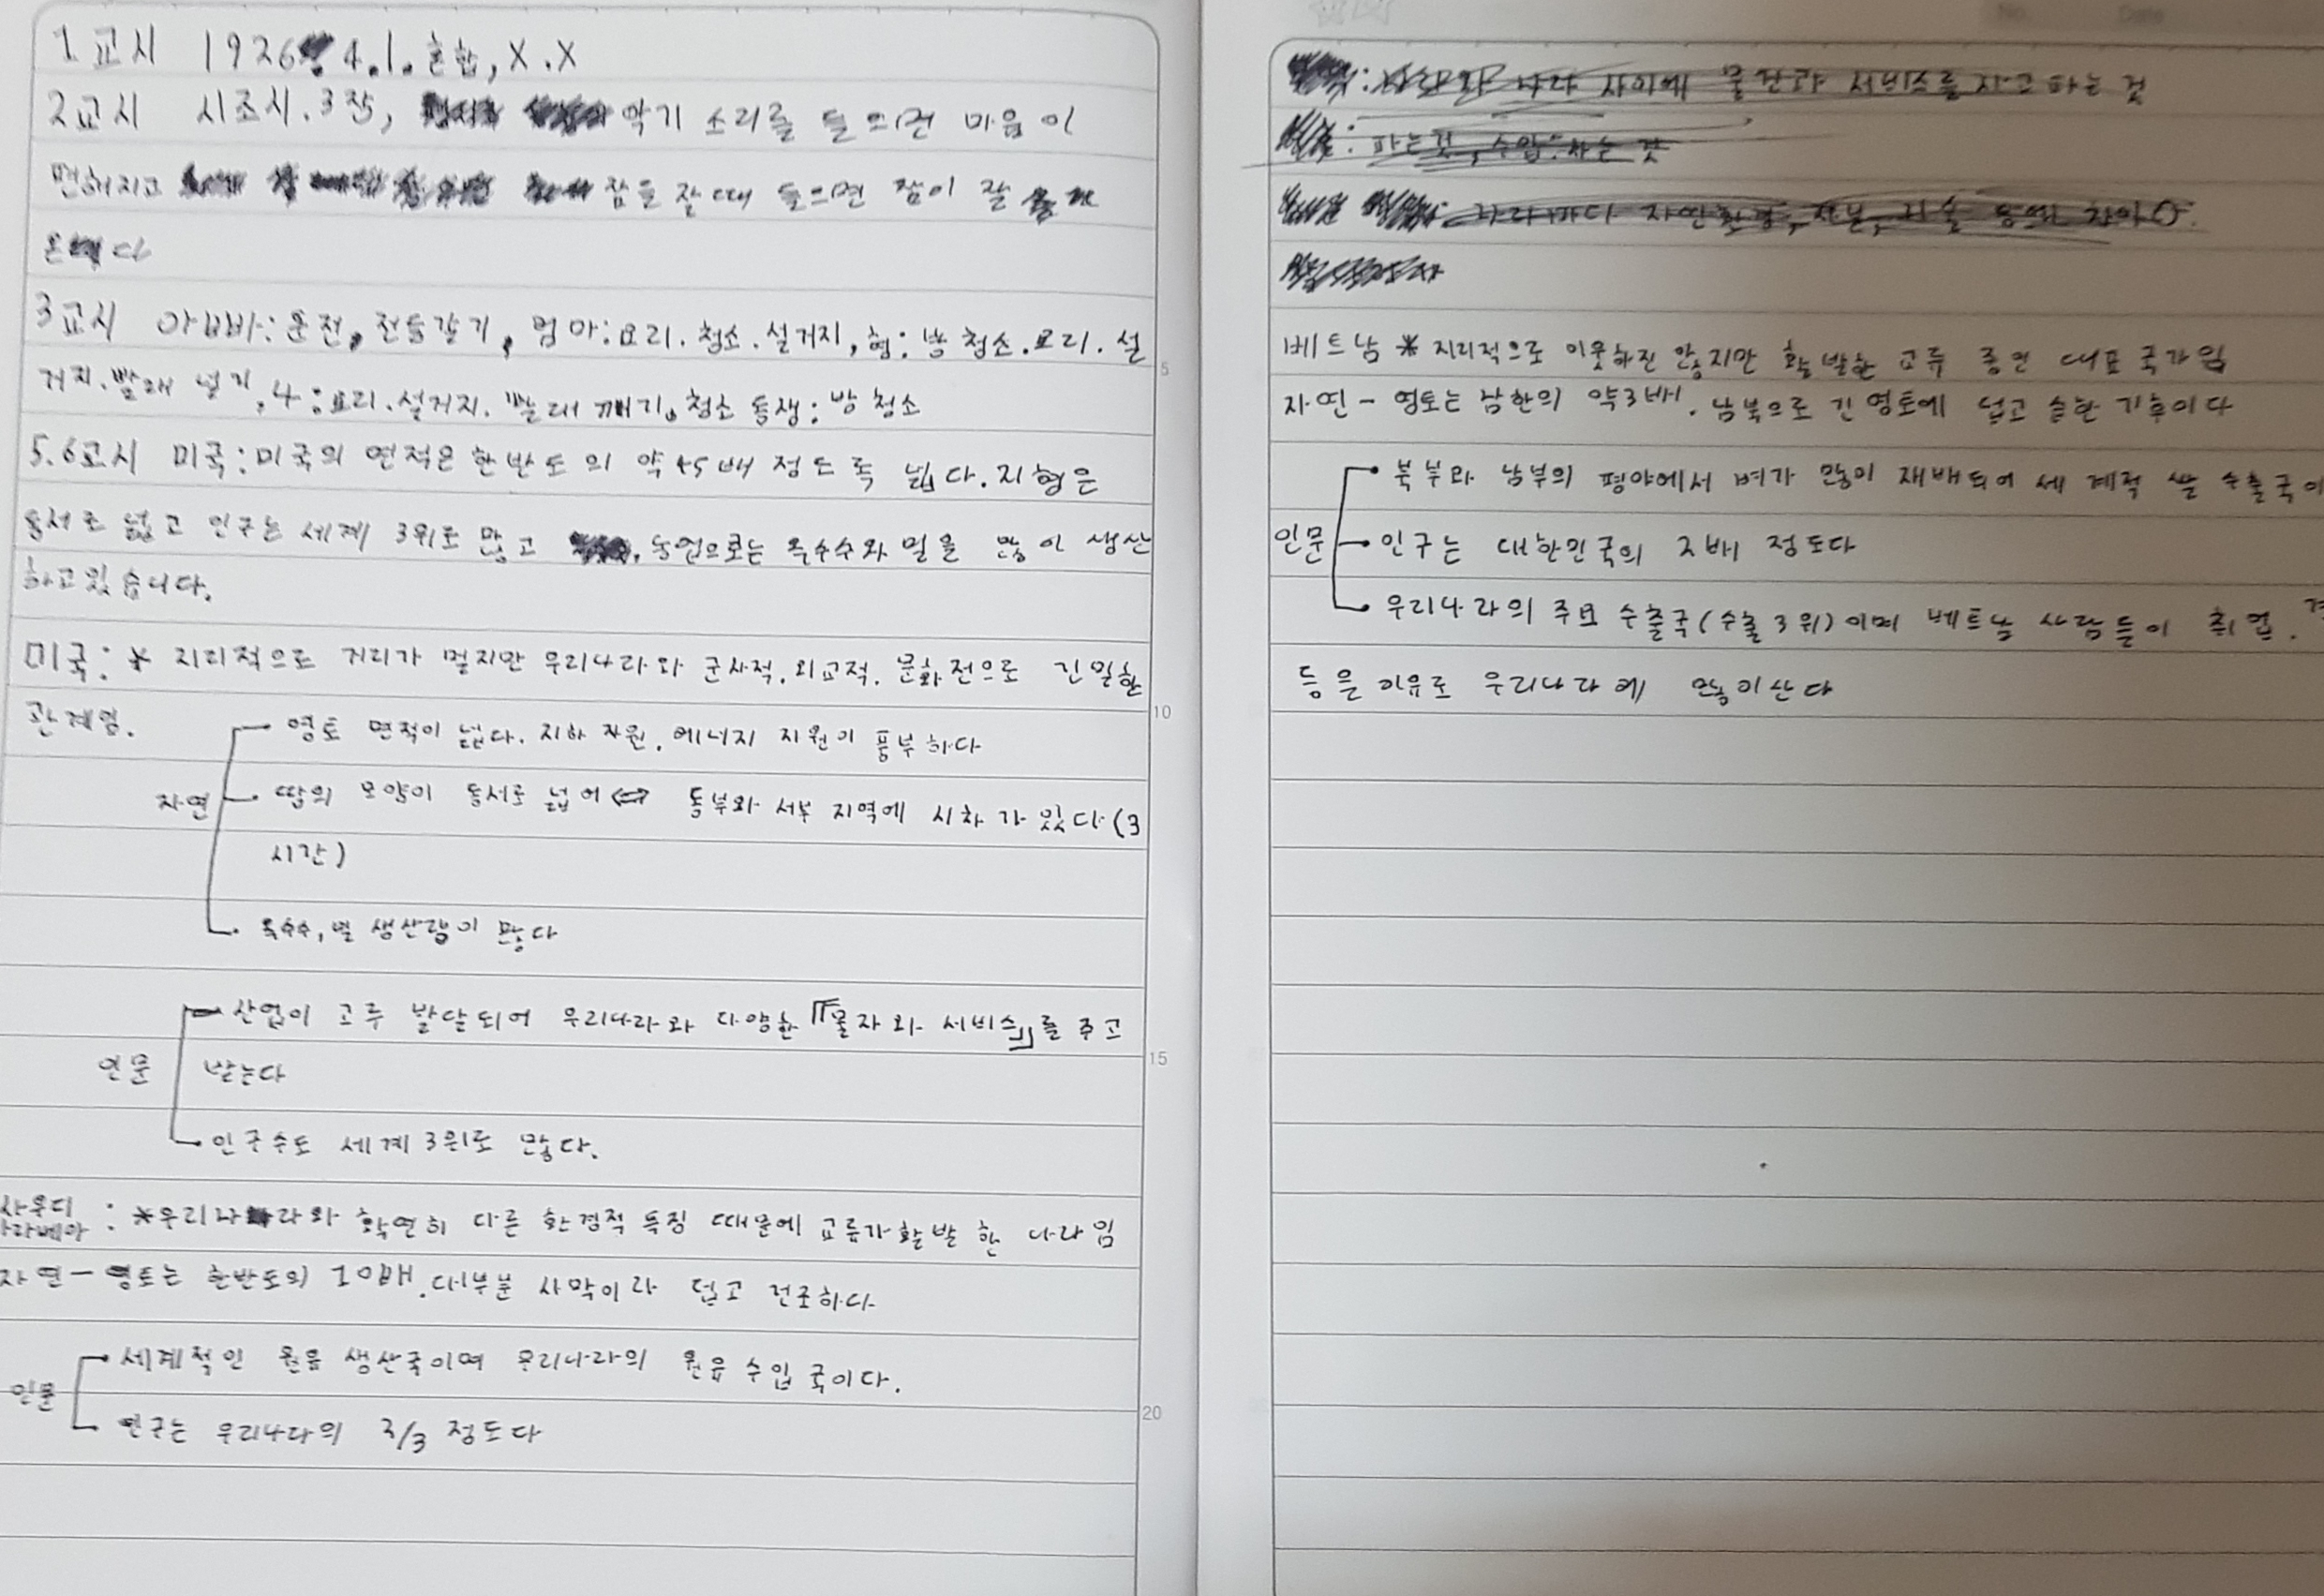 1교시 1926. 4.1. 혼합, X.X
2교시 시조시.3장, 악기 소리를 들으면 마음이
편해지고 잠을 잘때 들으면 잠이 잘
온다
3교시 아빠: 운전, 전등갈기, 엄마:요리.청소.설거지, 형: 방 청소.요리.설
거지.빨래 널기, 나:요리.설거지.빨래 깨기, 청소 동생: 방 청소
5.6교시 미국:미국의 면적은 한반도의 약 45배 정도록 넓다.지형은
동서로 넓고 인구는 세계 3위로 많고 , 농업으로는 옥수수와 밀을 많이 생산
하고있습니다.
미국: * 지리적으로 거리가 멀지만 우리나라와 군사적.외교적.문화전으로 긴밀한
관계임.
영토 면적이 넓다. 지하 자원, 에너지 자원이 풍부하다
자연 땅의 모양이 동서로 넓어 ⇔ 동부와 서부 지역에 시차가 있다 (3
시간)
옥수수, 밀 생산량이 많다
산업이 고루 발달되어 우리나라와 다양한 『물자와 서비스』를 주고
인문 받는다
인구수도 세계 3위로 많다.
사우디 아라베아 : *우리나라와 확연히 다른 환경적 특징 때문에 교류가 활발 한 나라임
자연 - 영토는 한반도의 10배. 대부분 사막이라 덥고 건조하다
세계적인 원유 생산국이며 우리나라의 원유 수입 국이다.
인문
인구는 우리나라의 2/3 정도다
나라 사이에 물건과 서비스를 사고 파는 것
: 파는것, 수입:사는 것
나라마다 자연환경, 자본, 기술 등에 차이
베트남 * 지리적으로 이웃하진 않지만 활발한 교류 중인 대표 국가임
자연 - 영토는 남한의 약3배. 남북으로 긴 영토에 덥고 습한 기후이다
북부와 남부의 평야에서 벼가 많이 재배되어 세계적 쌀 수출국이
인문 인구는 대한민국의 2배 정도다
우리나라의 주요 수출국(수출 3위)이며 베트남 사람들이 취업.
등을 이유로 우리나라에 많이산다